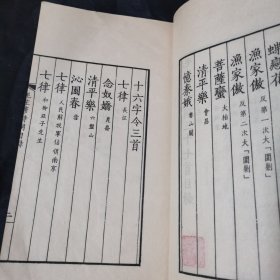 蝶戀花
漁家傲 反第一次大「圍剿」
漁家傲 反第二次大「圍剿」
菩薩蠻 大柏地
清平樂 會昌
憶秦娥 婁山關
十六字令三首
七律 長征
念奴嬌 崑崙
清平樂 六盤山
沁園春 雪
七律 人民解放軍佔領南京
七律 和柳亞子先生
二